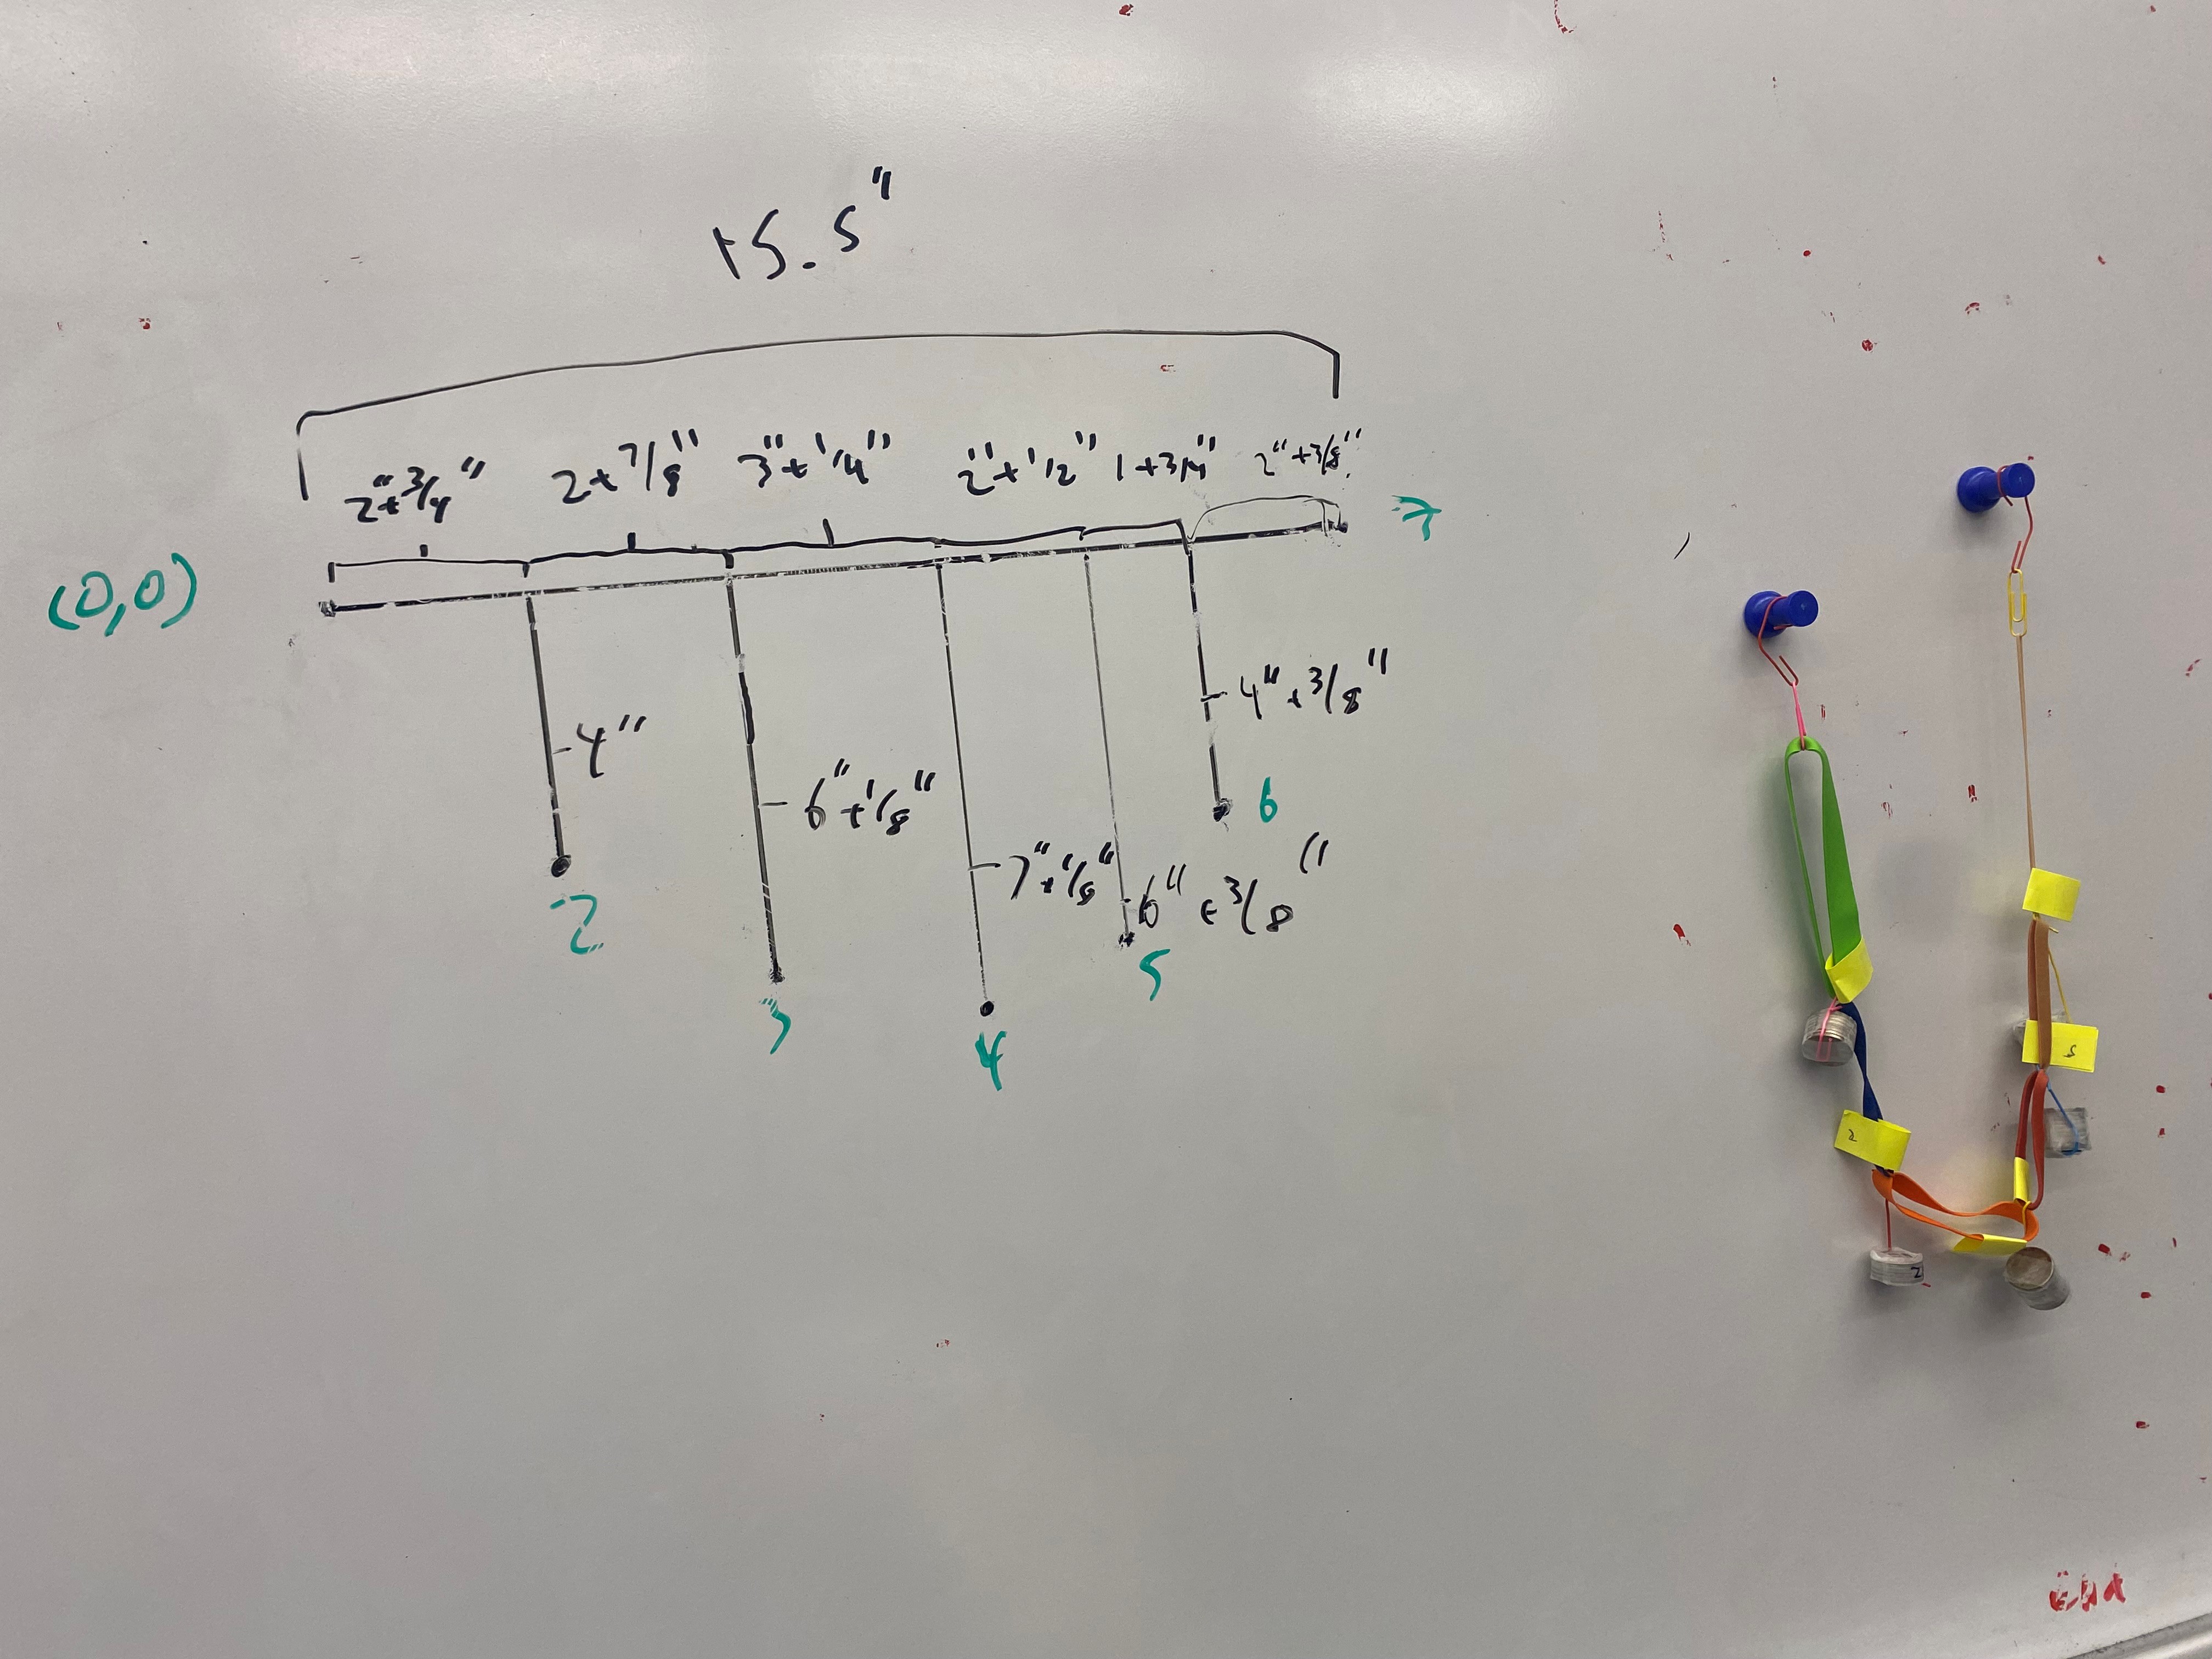 15.5"
2"+3/4" 2+7/8" 3"+1/4" 2"+1/2" 1+3/4" 2"+3/8"
(0,0) 7
4"
4"+3/8"
6"+1/8"
7"+1/8" 6"+3/8"
2
3
4
5
6
5
2
2